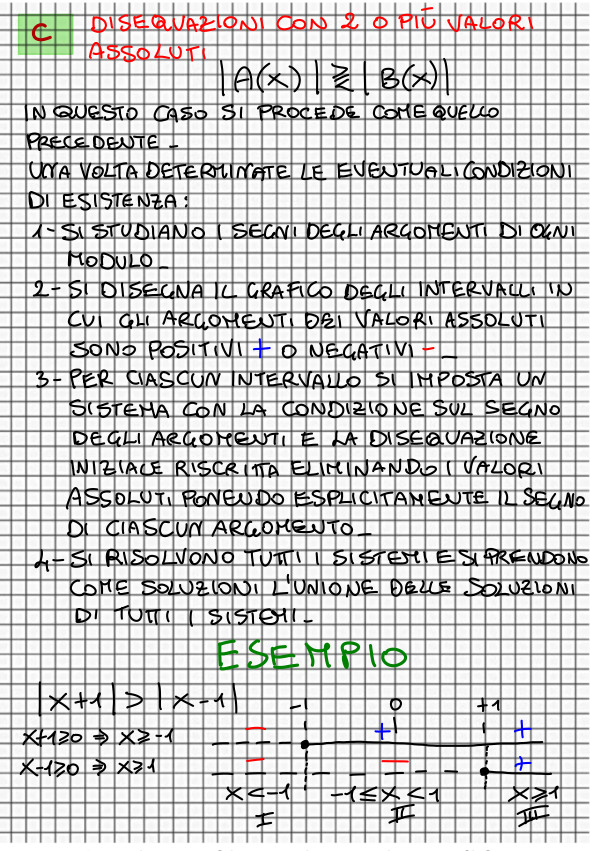 C DISEQUAZIONI CON 2 O PIÙ VALORI
ASSOLUTI
|A(x)| ≷ |B(x)|
IN QUESTO CASO SI PROCEDE COME QUELLO
PRECEDENTE_
UNA VOLTA DETERMINATE LE EVENTUALI CONDIZIONI
DI ESISTENZA:
1- SI STUDIANO I SEGNI DEGLI ARGOMENTI DI OGNI
MODULO_
2- SI DISEGNA IL GRAFICO DEGLI INTERVALLI IN
CUI GLI ARGOMENTI DEI VALORI ASSOLUTI
SONO POSITIVI + O NEGATIVI - _
3- PER CIASCUN INTERVALLO SI IMPOSTA UN
SISTEMA CON LA CONDIZIONE SUL SEGNO
DEGLI ARGOMENTI E LA DISEQUAZIONE
INIZIALE RISCRITTA ELIMINANDO I VALORI
ASSOLUTI PONENDO ESPLICITAMENTE IL SEGNO
DI CIASCUN ARGOMENTO_
4- SI RISOLVONO TUTTI I SISTEMI E SI PRENDONO
COME SOLUZIONI L'UNIONE DELLE SOLUZIONI
DI TUTTI I SISTEMI_
ESEMPIO
|x+1| > |x-1| -1 0 +1
x+1≥0 ⇒ x≥-1 - + +
x-1≥0 ⇒ x≥1 - - +
x<-1 -1≤x<1 x≥1
I II III